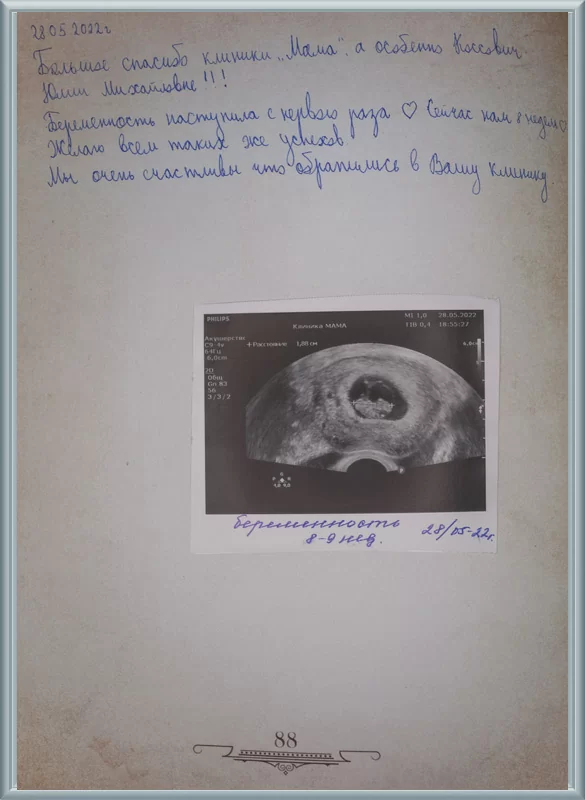 28 05 2022г
Большое спасибо клиники „Мама". а особенно Коссович
Юлии Михайловне!!!
Беременность наступила с первого раза ♡ Сейчас нам 8 недель ♡
Желаю всем таких же успехов.
Мы очень счастливы что обратились в Вашу клинику.
PHILIPS
MI 1,0 28.05.2022
Клиника МАМА
TIB 0,4 18:55:27
Акушерство
C9-4v
+ Расстояние 1,88 см
64Гц
2D
Общ
Gn 83
56
3/3/2
беременность
8-9 нед.
28/05-22г.
88